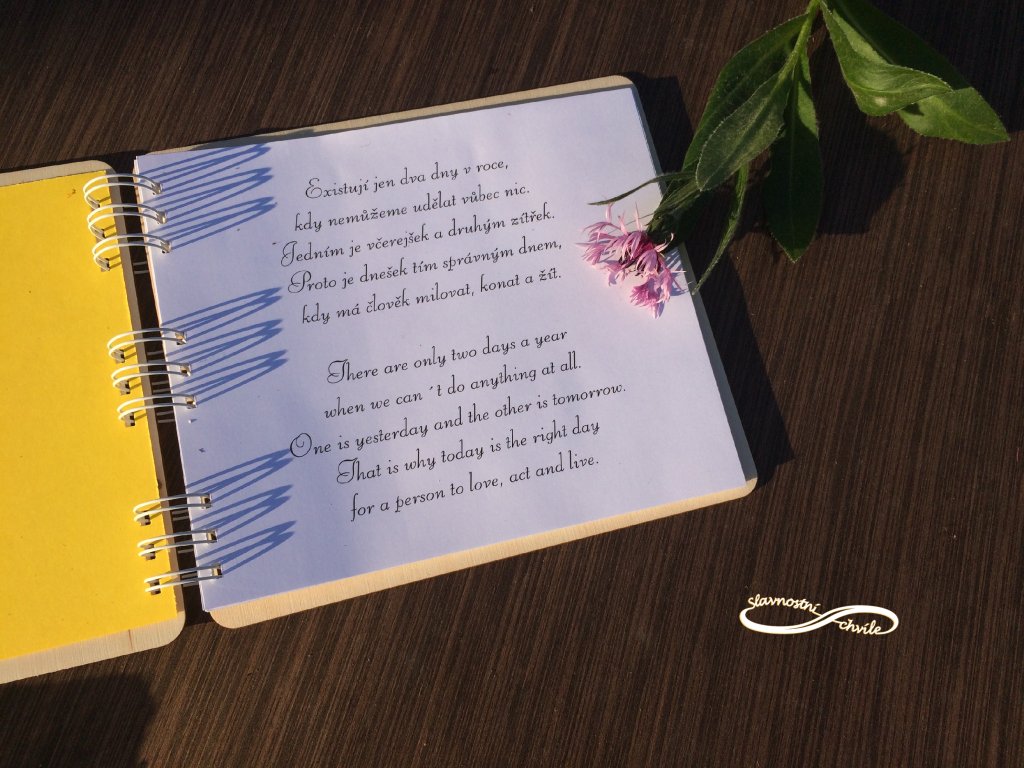 Existují jen dva dny v roce,
kdy nemůžeme udělat vůbec nic.
Jedním je včerejšek a druhým zítřek.
Proto je dnešek tím správným dnem,
kdy má člověk milovat, konat a žít.
There are only two days a year
when we can´t do anything at all.
One is yesterday and the other is tomorrow.
That is why today is the right day
for a person to love, act and live.
slavnostní
chvíle